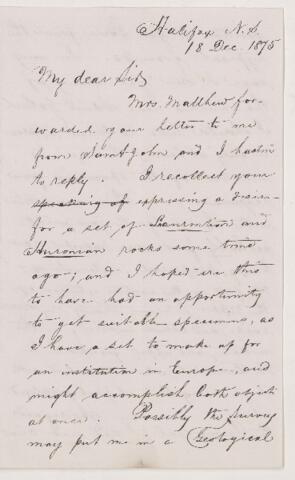 Halifax N.S.
18 Dec. 1875
My dear Sir,
Mrs. Matthew for-
warded your letter to me
from Saint John and I hasten
to reply. I recollect your
speaking of expressing a desire
for a set of Laurentian and
Huronian rocks some time
ago; and I hoped ere this
to have had an opportunity
to get suitable specimens, as
I have a set to make up for
an institution in Europe, and
might accomplish both objects
at once. Possibly the Survey
may put me in a Geological